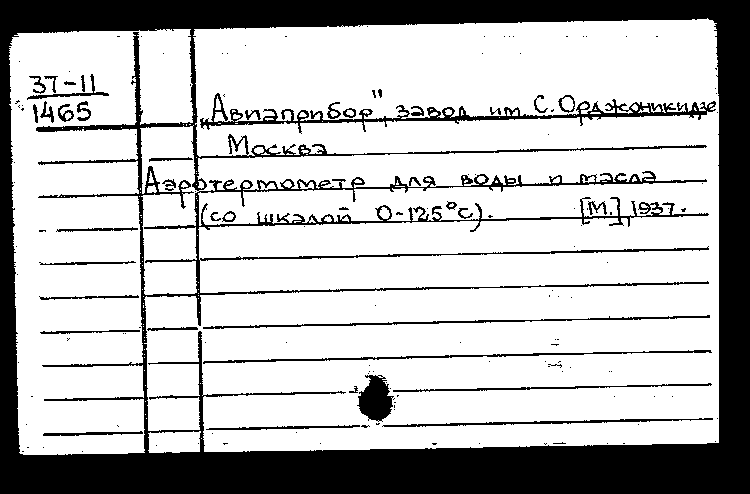 37-11
1465
„Авиаприбор", завод им. С. Орджоникидзе
Москва
Аэротермометр для воды и масла
(со шкалой 0-125°С). [М.], 1937.